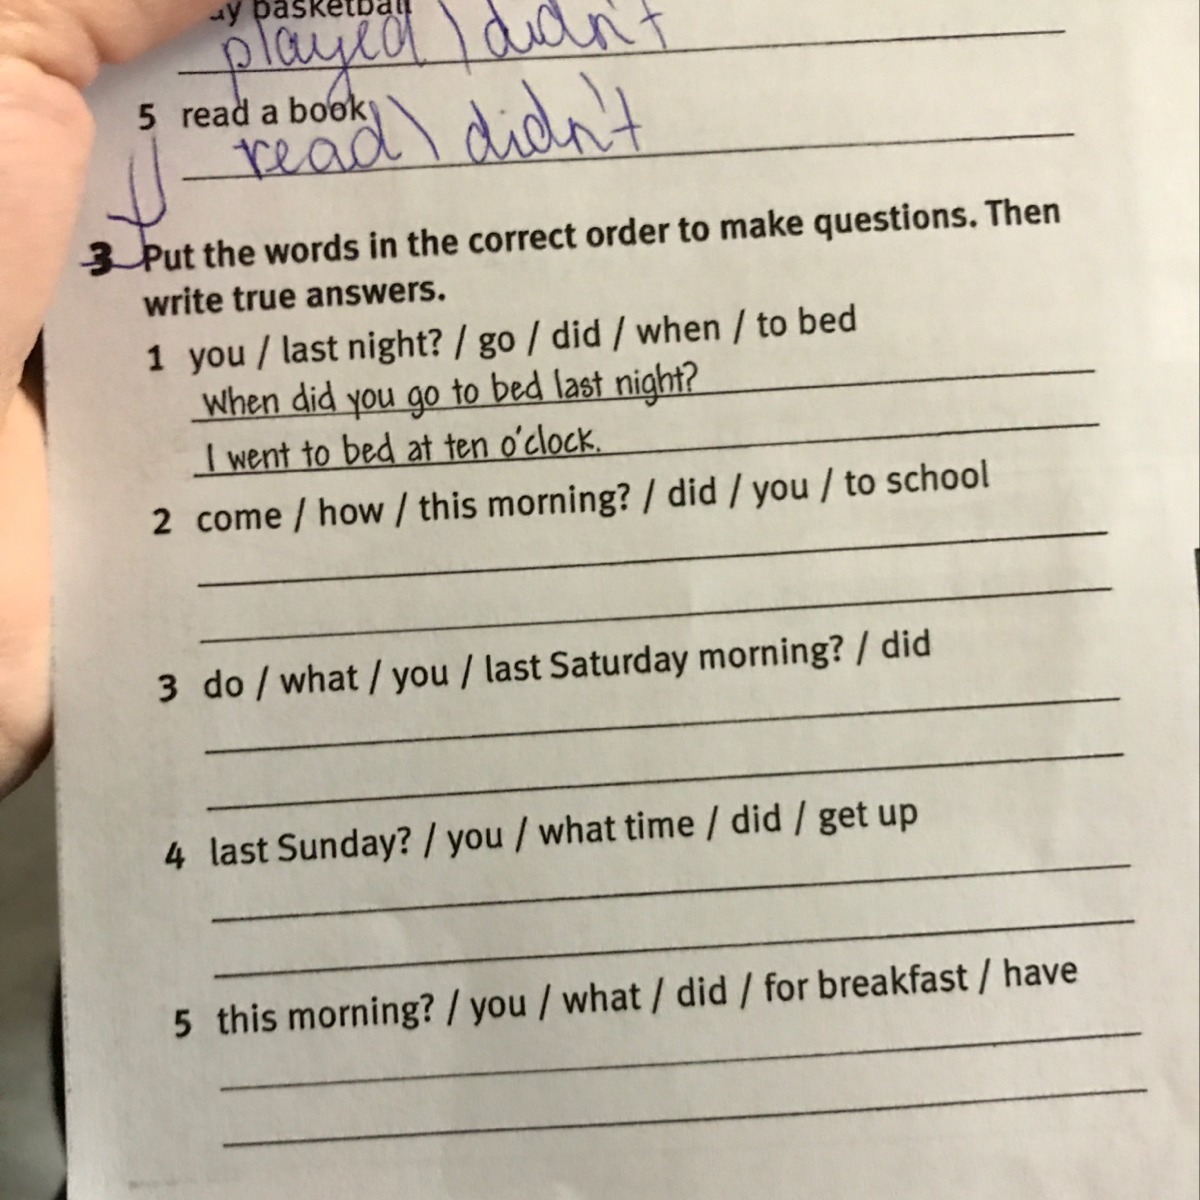 basketball
played \ didn't
5 read a book
read \ didn't
3 Put the words in the correct order to make questions. Then
write true answers.
1 you / last night? / go / did / when / to bed
When did you go to bed last night?
I went to bed at ten o'clock.
2 come / how / this morning? / did / you / to school
3 do / what / you / last Saturday morning? / did
4 last Sunday? / you / what time / did / get up
5 this morning? / you / what / did / for breakfast / have